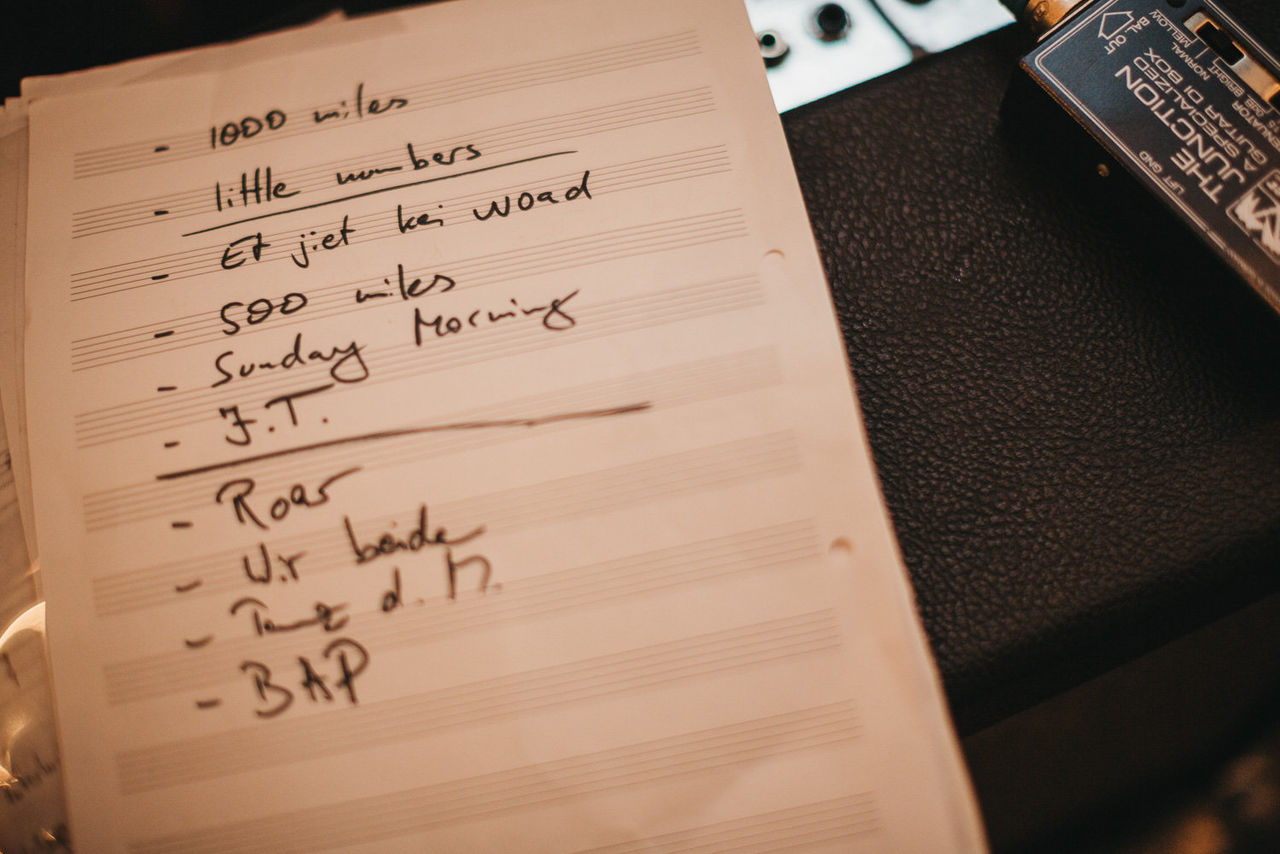 - 1000 miles
- little numbers
- Et jiet kei woad
- 500 miles
- Sunday Morning
- J.T.
- Roar
- Wir beide
- Tanz d. M.
- BAP
OUT
BAL
MELLOW
NORMAL
BRIGHT
LIFT GND
THE JUNCTION
SPECIALIZED
GUITAR DI BOX